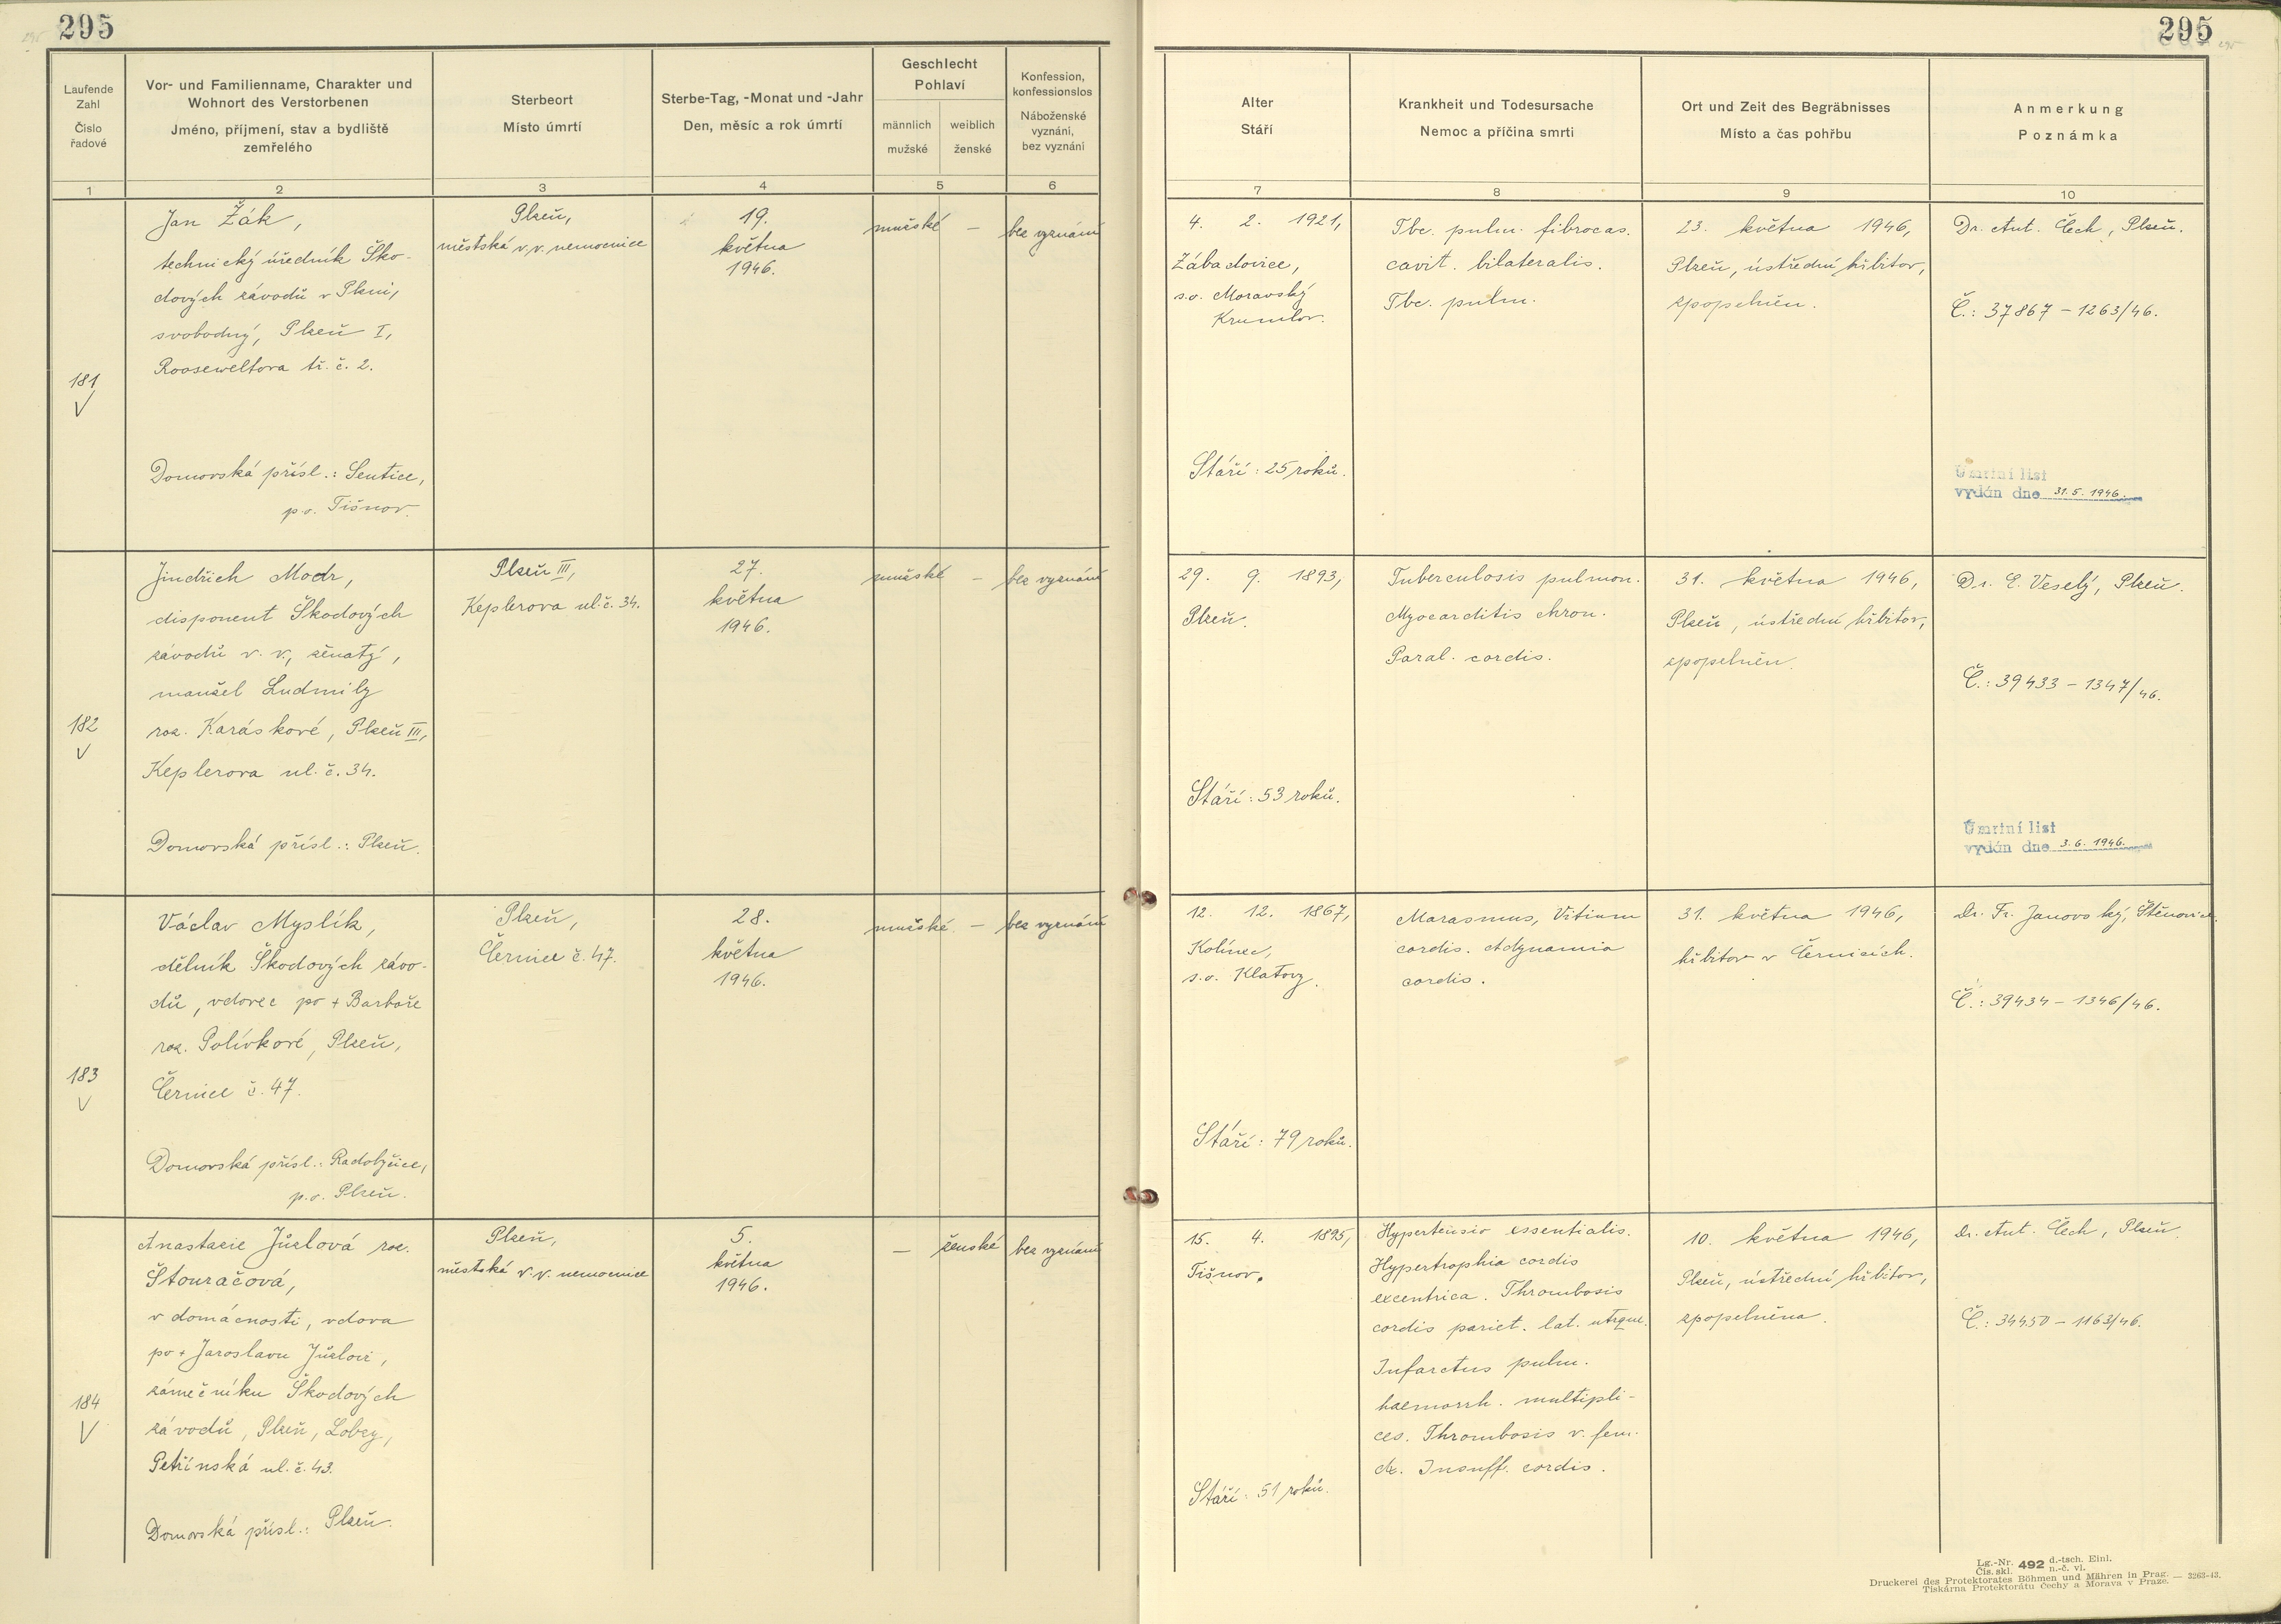 295
295
Laufende
Zahl
Číslo
řadové
Vor- und Familienname, Charakter und
Wohnort des Verstorbenen
Jméno, příjmení, stav a bydliště
zemřelého
Sterbeort
Místo úmrtí
Sterbe-Tag, -Monat und -Jahr
Den, měsíc a rok úmrtí
Geschlecht
Pohlaví
männlich
mužské
weiblich
ženské
Konfession,
konfessionslos
Náboženské
vyznání,
bez vyznání
Alter
Stáří
Krankheit und Todesursache
Nemoc a příčina smrti
Ort und Zeit des Begräbnisses
Místo a čas pohřbu
Anmerkung
Poznámka
1 2 3 4 5 6 7 8 9 10
181
V
Jan Žák,
technický úředník Ško-
dových závodů v Plzni,
svobodný, Plzeň I,
Rooseweltova tř. č. 2.
Domovská přísl.: Sentice,
p.o. Tišnov.
Plzeň,
městská v.v. nemocnice
19.
května
1946.
mužské
–
bez vyznání
4. 2. 1921,
Zábadovice,
s.o. Moravský
Krumlov.
Stáří: 25 roků.
Tbc. pulm. fibrocas.
cavit. bilateralis.
Tbc. pulm.
23. května 1946,
Plzeň, ústřední hřbitov,
zpopelněn.
Dr. Ant. Čech, Plzeň.
Č.: 37867 – 1263/46.
Úmrtní list
vydán dne 31.5.1946.
182
V
Jindřich Modr,
disponent Škodových
závodů v. v., ženatý,
manžel Ludmily
roz. Karáskové, Plzeň III,
Keplerova ul. č. 34.
Domovská přísl.: Plzeň.
Plzeň III,
Keplerova ul. č. 34.
27.
května
1946.
mužské
–
bez vyznání
29. 9. 1893,
Plzeň.
Stáří: 53 roků.
Tuberculosis pulmon.
Myocarditis chron.
Paral. cordis.
31. května 1946,
Plzeň, ústřední hřbitov,
zpopelněn.
Dr. E. Veselý, Plzeň.
Č.: 39433 – 1347/46.
Úmrtní list
vydán dne 3.6.1946.
183
V
Václav Myslík,
dělník Škodových závo-
dů, vdovec po + Barboře
roz. Polívkové, Plzeň,
Černice č. 47.
Domovská přísl.: Radobyčice,
p.o. Plzeň.
Plzeň,
Černice č. 47.
28.
května
1946.
mužské.
–
bez vyznání
12. 12. 1867,
Kolinec,
s.o. Klatovy.
Stáří: 79 roků.
Marasmus, Vitium
cordis. Adynamia
cordis.
31. května 1946,
hřbitov v Černicích.
Dr. Fr. Janovský, Štěnovice.
Č.: 39434 – 1346/46.
184
V
Anastazie Jůzlová roz.
Štouračová,
v domácnosti, vdova
po + Jaroslavu Jůzlovi,
zámečníku Škodových
závodů, Plzeň, Lobzy,
Petřínská ul. č. 43.
Domovská přísl.: Plzeň.
Plzeň,
městská v.v. nemocnice
5.
května
1946.
–
ženské
bez vyznání
15. 4. 1895,
Tišnov.
Stáří: 51 roků.
Hypertensio essentialis.
Hypertrophia cordis
excentrica. Thrombosis
cordis pariet. lat. utrque.
Infarctus pulm.
haemorrh. multipli-
ces. Thrombosis v. fem.
dx. Insuff. cordis.
10. května 1946,
Plzeň, ústřední hřbitov,
zpopelněna.
Dr. Ant. Čech, Plzeň.
Č.: 34450 – 1163/46.
Lg.-Nr. 492 d.-tsch. Einl.
Čís. skl. n.-č. vl.
Druckerei des Protektorates Böhmen und Mähren in Prag. — 3263-43.
Tiskárna Protektorátu Čechy a Morava v Praze.